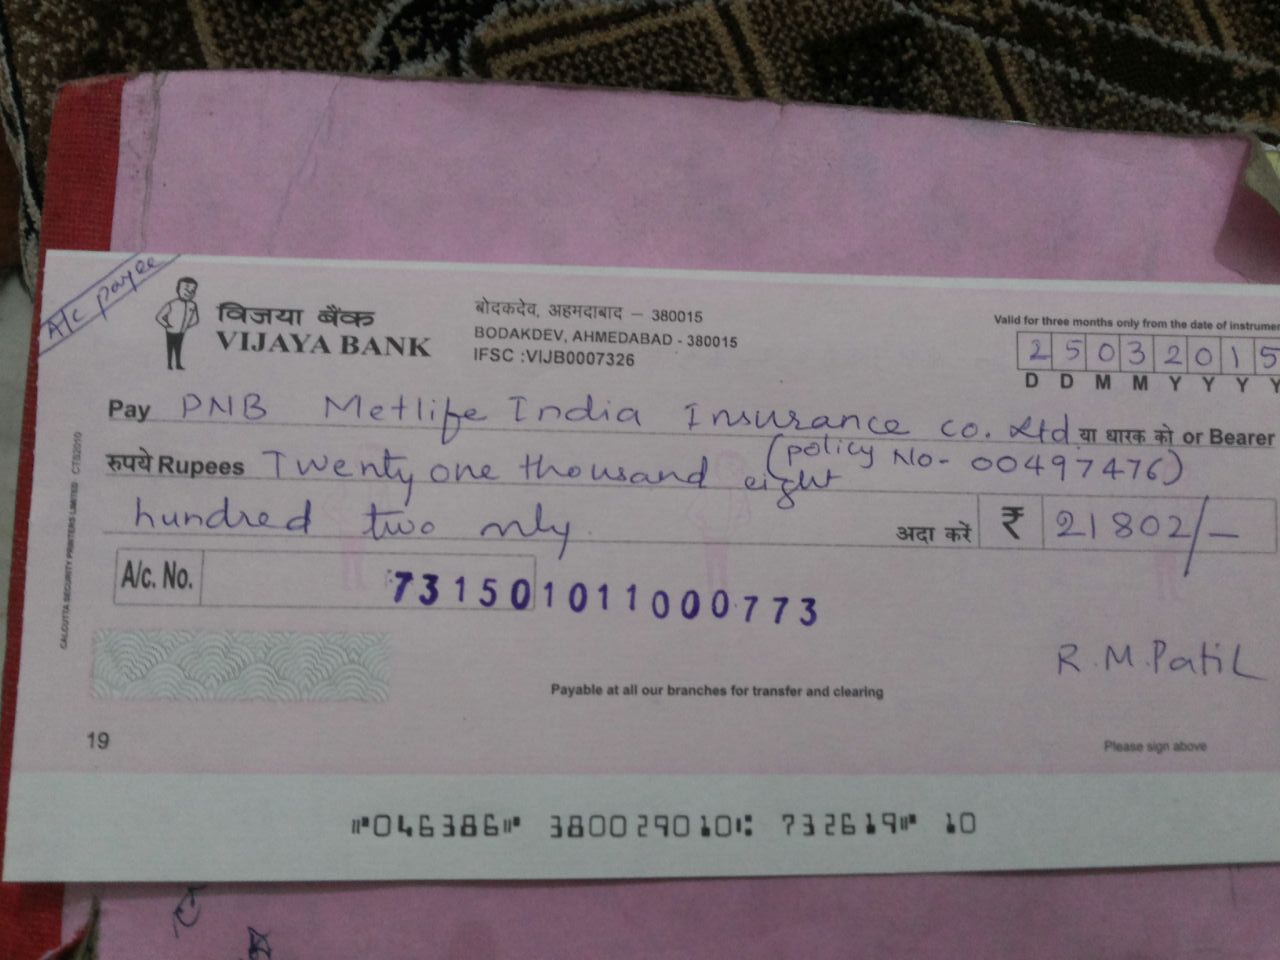 A/c payee
विजया बैंक
VIJAYA BANK
बोदकदेव, अहमदाबाद – 380015
BODAKDEV, AHMEDABAD - 380015
IFSC :VIJB0007326
Valid for three months only from the date of instrumen
2 5 0 3 2 0 1 5
D D M M Y Y Y Y
Pay PNB Metlife India Insurance co. Ltd या धारक को or Bearer
(policy No- 00497476)
रुपये Rupees Twenty one thousand eight
hundred two only.
अदा करें ₹ 21802/-
A/c. No. 731501011000773
CALCUTTA SECURITY PRINTERS LIMITED CTS2010
R.M.Patil
Payable at all our branches for transfer and clearing
19
Please sign above
⑈046386⑈ 380029010⑆ 732619⑈ 10